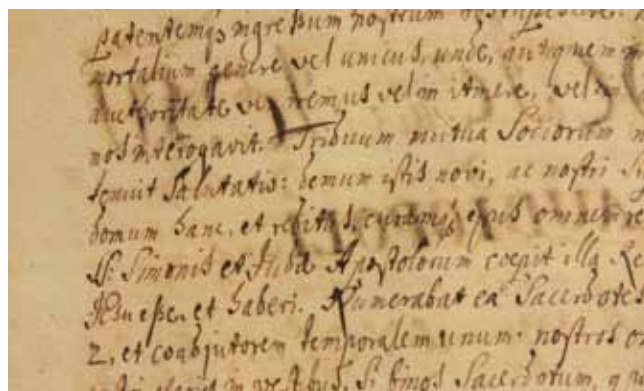 patentemq, ingressum nostrum obstupescere
mortalium genere vel unicus, unde, aut quem
authoritate veniremus vel in itinere, vel in
nos interrogavit. Triduum mutua Sociorum
tenuit Salutatio: demum istis novi, ac nostri
domum hanc, et reditus, curamq, ejus omnem
SS: Simonis et Judæ Apostolorum coepit illa Re
JEsu esse, et haberi. Numerabat ea Sacerdotes
2, et coadjutorem temporalem unum: nostros
Si binos Sacerdotum